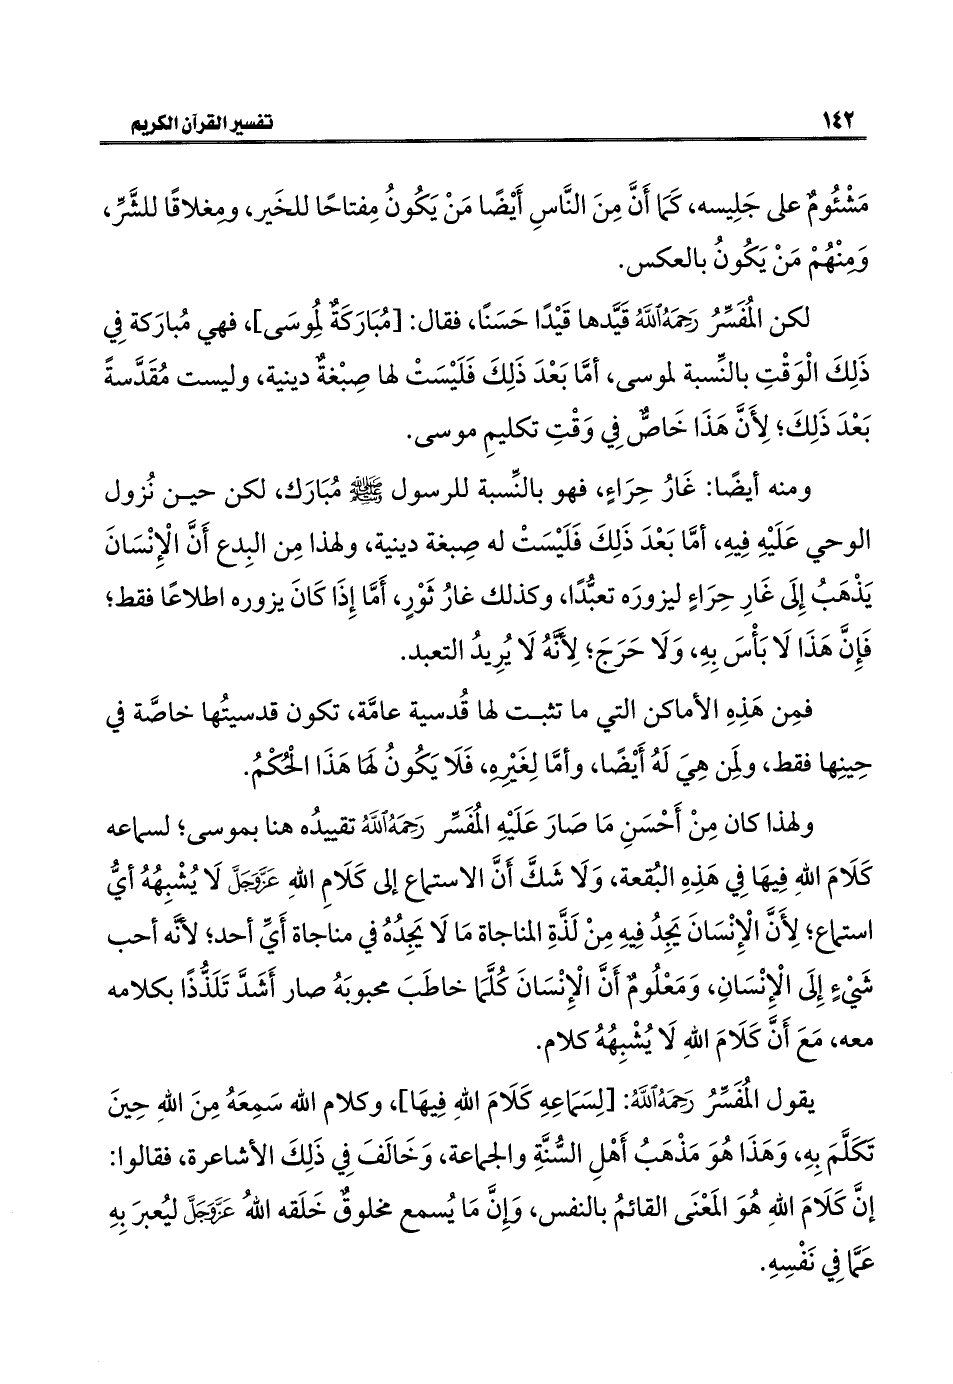 ١٤٢
تفسير القرآن الكريم
مَشْئُومٌ على جَلِيسه، كَمَا أَنَّ مِنَ النَّاسِ أَيْضًا مَنْ يَكُونُ مِفتاحًا للخَير، ومِغلاقًا للشَّرِّ،
وَمِنْهُمْ مَنْ يَكُونُ بالعكس.
لكن المُفَسِّرُ رَحِمَهُ ٱللَّهُ قَيَّدها قَيْدًا حَسَنًا، فقال: [مُبَارَكَةٌ لِمُوسَى]، فهي مُبارَكة فِي
ذَلِكَ الْوَقْتِ بالنِّسبة لموسى، أمَّا بَعْدَ ذَلِكَ فَلَيْسَتْ لها صِبْغةٌ دينية، وليست مُقَدَّسةً
بَعْدَ ذَلِكَ؛ لِأَنَّ هَذَا خَاصٌّ فِي وَقْتِ تكليمِ موسى.
ومنه أيضًا: غَارُ حِرَاءٍ، فهو بالنِّسبة للرسول ﷺ مُبارَك، لكن حيـن نُزول
الوحي عَلَيْهِ فِيهِ، أمَّا بَعْدَ ذَلِكَ فَلَيْسَتْ له صِبغة دينية، ولهذا مِن البِدع أَنَّ الْإِنْسَانَ
يَذْهَبُ إِلَى غَارِ حِرَاءٍ ليزورَه تعبُّدًا، وكذلك غارُ ثَوْرٍ، أَمَّا إِذَا كَانَ يزوره اطلاعًا فقط؛
فَإِنَّ هَذَا لَا بَأْسَ بِهِ، وَلَا حَرَجَ؛ لِأَنَّهُ لَا يُرِيدُ التعبد.
فمِن هَذِهِ الأماكن التي ما تثبـت لها قُدسية عامَّة، تكون قدسيتُها خاصَّة في
حِينِها فقط، ولِمَن هِيَ لَهُ أَيْضًا، وأمَّا لِغَيْرِهِ، فَلَا يَكُونُ لَهَا هَذَا الْحُكْمُ.
ولهذا كان مِنْ أَحْسَنِ مَا صَارَ عَلَيْهِ المُفَسِّر رَحِمَهُ ٱللَّهُ تقييدُه هنا بموسى؛ لسماعه
كَلَامَ اللهِ فِيهَا فِي هَذِهِ البُقعة، وَلَا شَكَّ أَنَّ الاستماع إلى كَلَامِ اللهِ عَزَّوَجَلَّ لَا يُشْبِهُهُ أيُّ
استماع؛ لِأَنَّ الْإِنْسَانَ يَجِدُ فِيهِ مِنْ لَذَّةِ المناجاة مَا لَا يَجِدُهُ فِي مناجاة أَيِّ أحد؛ لأنَّه أحب
شَيْءٍ إِلَى الْإِنْسَانِ، وَمَعْلُومٌ أَنَّ الْإِنْسَانَ كُلَّمَا خاطَبَ محبوبَهُ صار أشَدَّ تَلَذُّذًا بكلامه
معه، مَعَ أَنَّ كَلَامَ اللهِ لَا يُشْبِهُهُ كلام.
يقول المُفَسِّرُ رَحِمَهُ ٱللَّهُ: [لِسَمَاعِهِ كَلَامَ اللهِ فِيهَا]، وكلام الله سَمِعَهُ مِنَ اللهِ حِينَ
تَكَلَّمَ بِهِ، وَهَذَا هُوَ مَذْهَبُ أَهْلِ السُّنَّةِ والجماعة، وَخَالَفَ فِي ذَلِكَ الأشاعرة، فقالوا:
إنَّ كَلَامَ اللهِ هُوَ المَعْنَى القائمُ بالنفس، وَإِنَّ مَا يُسمع مخلوقٌ خَلَقه اللهُ عَزَّوَجَلَّ ليُعبرَ بِهِ
عَمَّا فِي نَفْسِهِ.